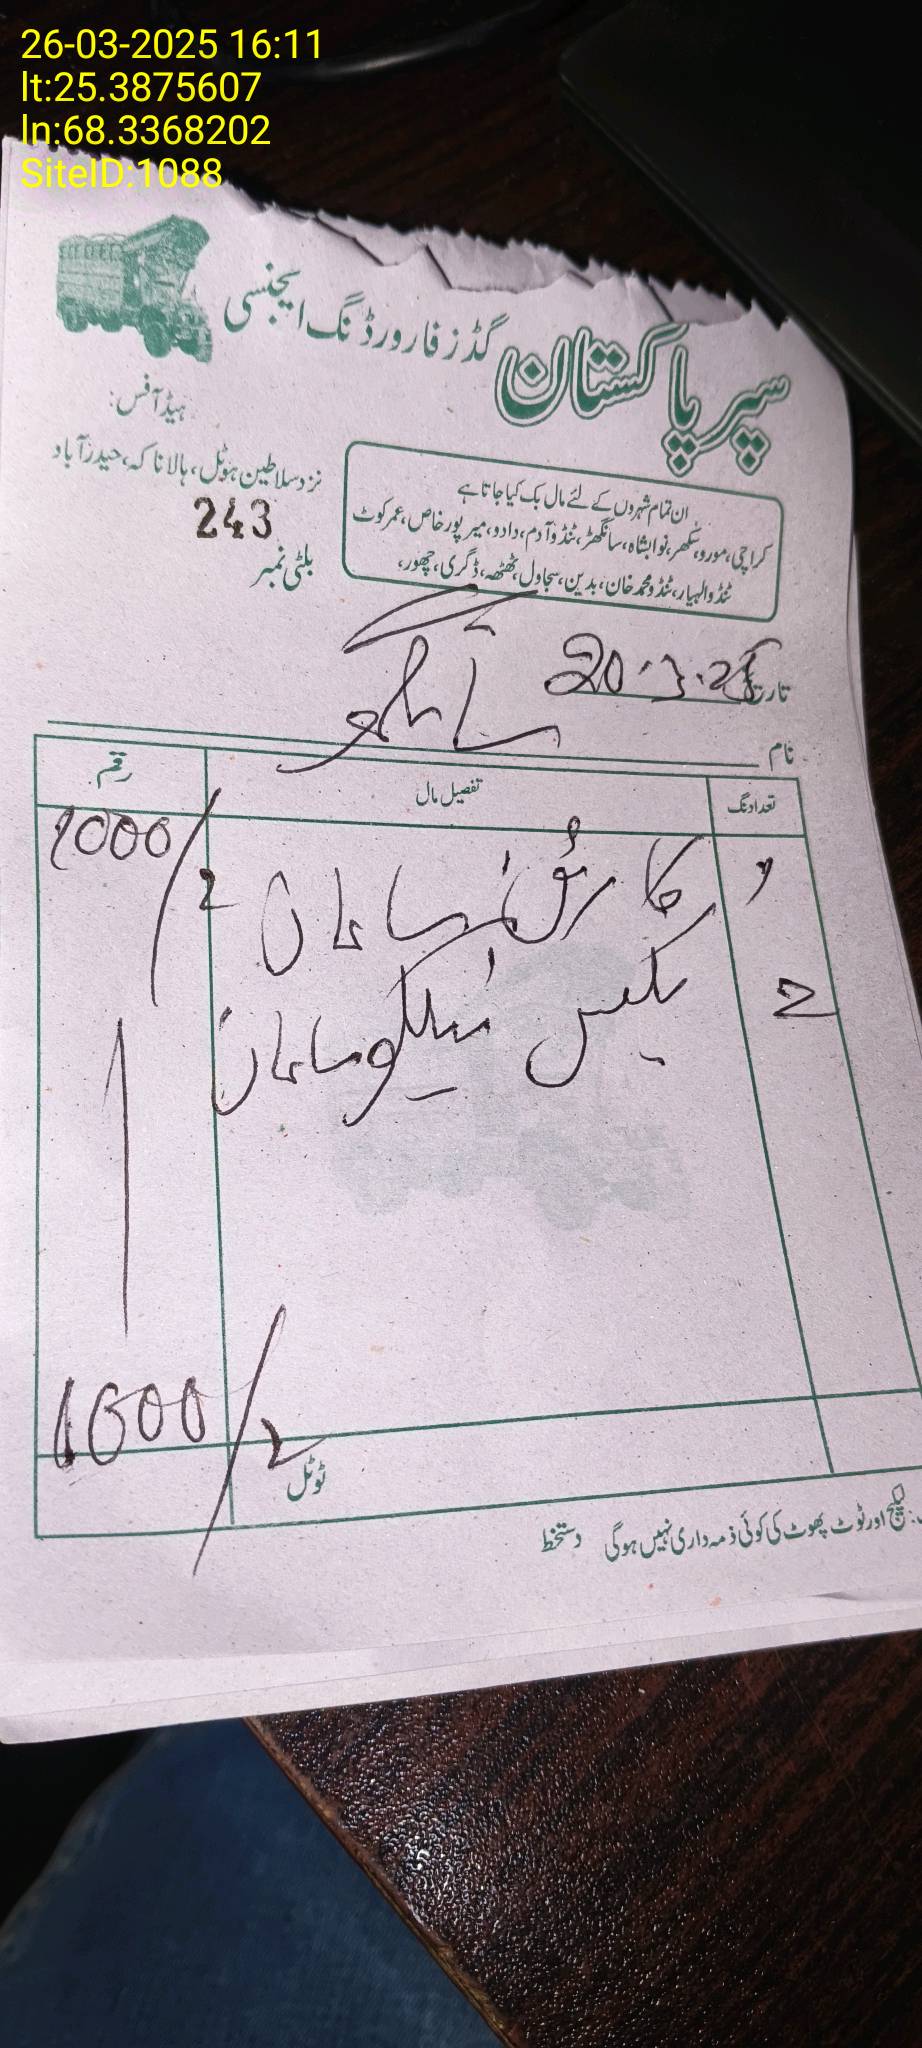 26-03-2025 16:11
lt:25.3875607
ln:68.3368202
SiteID:1088
سپر پاکستان گڈز فارورڈنگ ایجنسی
ہیڈ آفس:
نزد سلاطین ہوٹل، ہالا ناکہ، حیدرآباد
243
بلٹی نمبر
ان تمام شہروں کے لئے مال بک کیا جاتا ہے
کراچی، مورو، سکھر، نوابشاہ، سانگھڑ، ٹنڈوآدم، دادو، میرپورخاص، عمرکوٹ
ٹنڈوالہیار، ٹنڈو محمد خان، بدین، سجاول، ٹھٹھہ، ڈگری، چھور،
تاریخ 20.3.25
نام
تعداد نگ تفصیل مال رقم
کارٹن سامان 1000/
2 بکس ٹیلیکو سامان
ٹوٹل 1600/
لیکج اور ٹوٹ پھوٹ کی کوئی ذمہ داری نہیں ہوگی دستخط